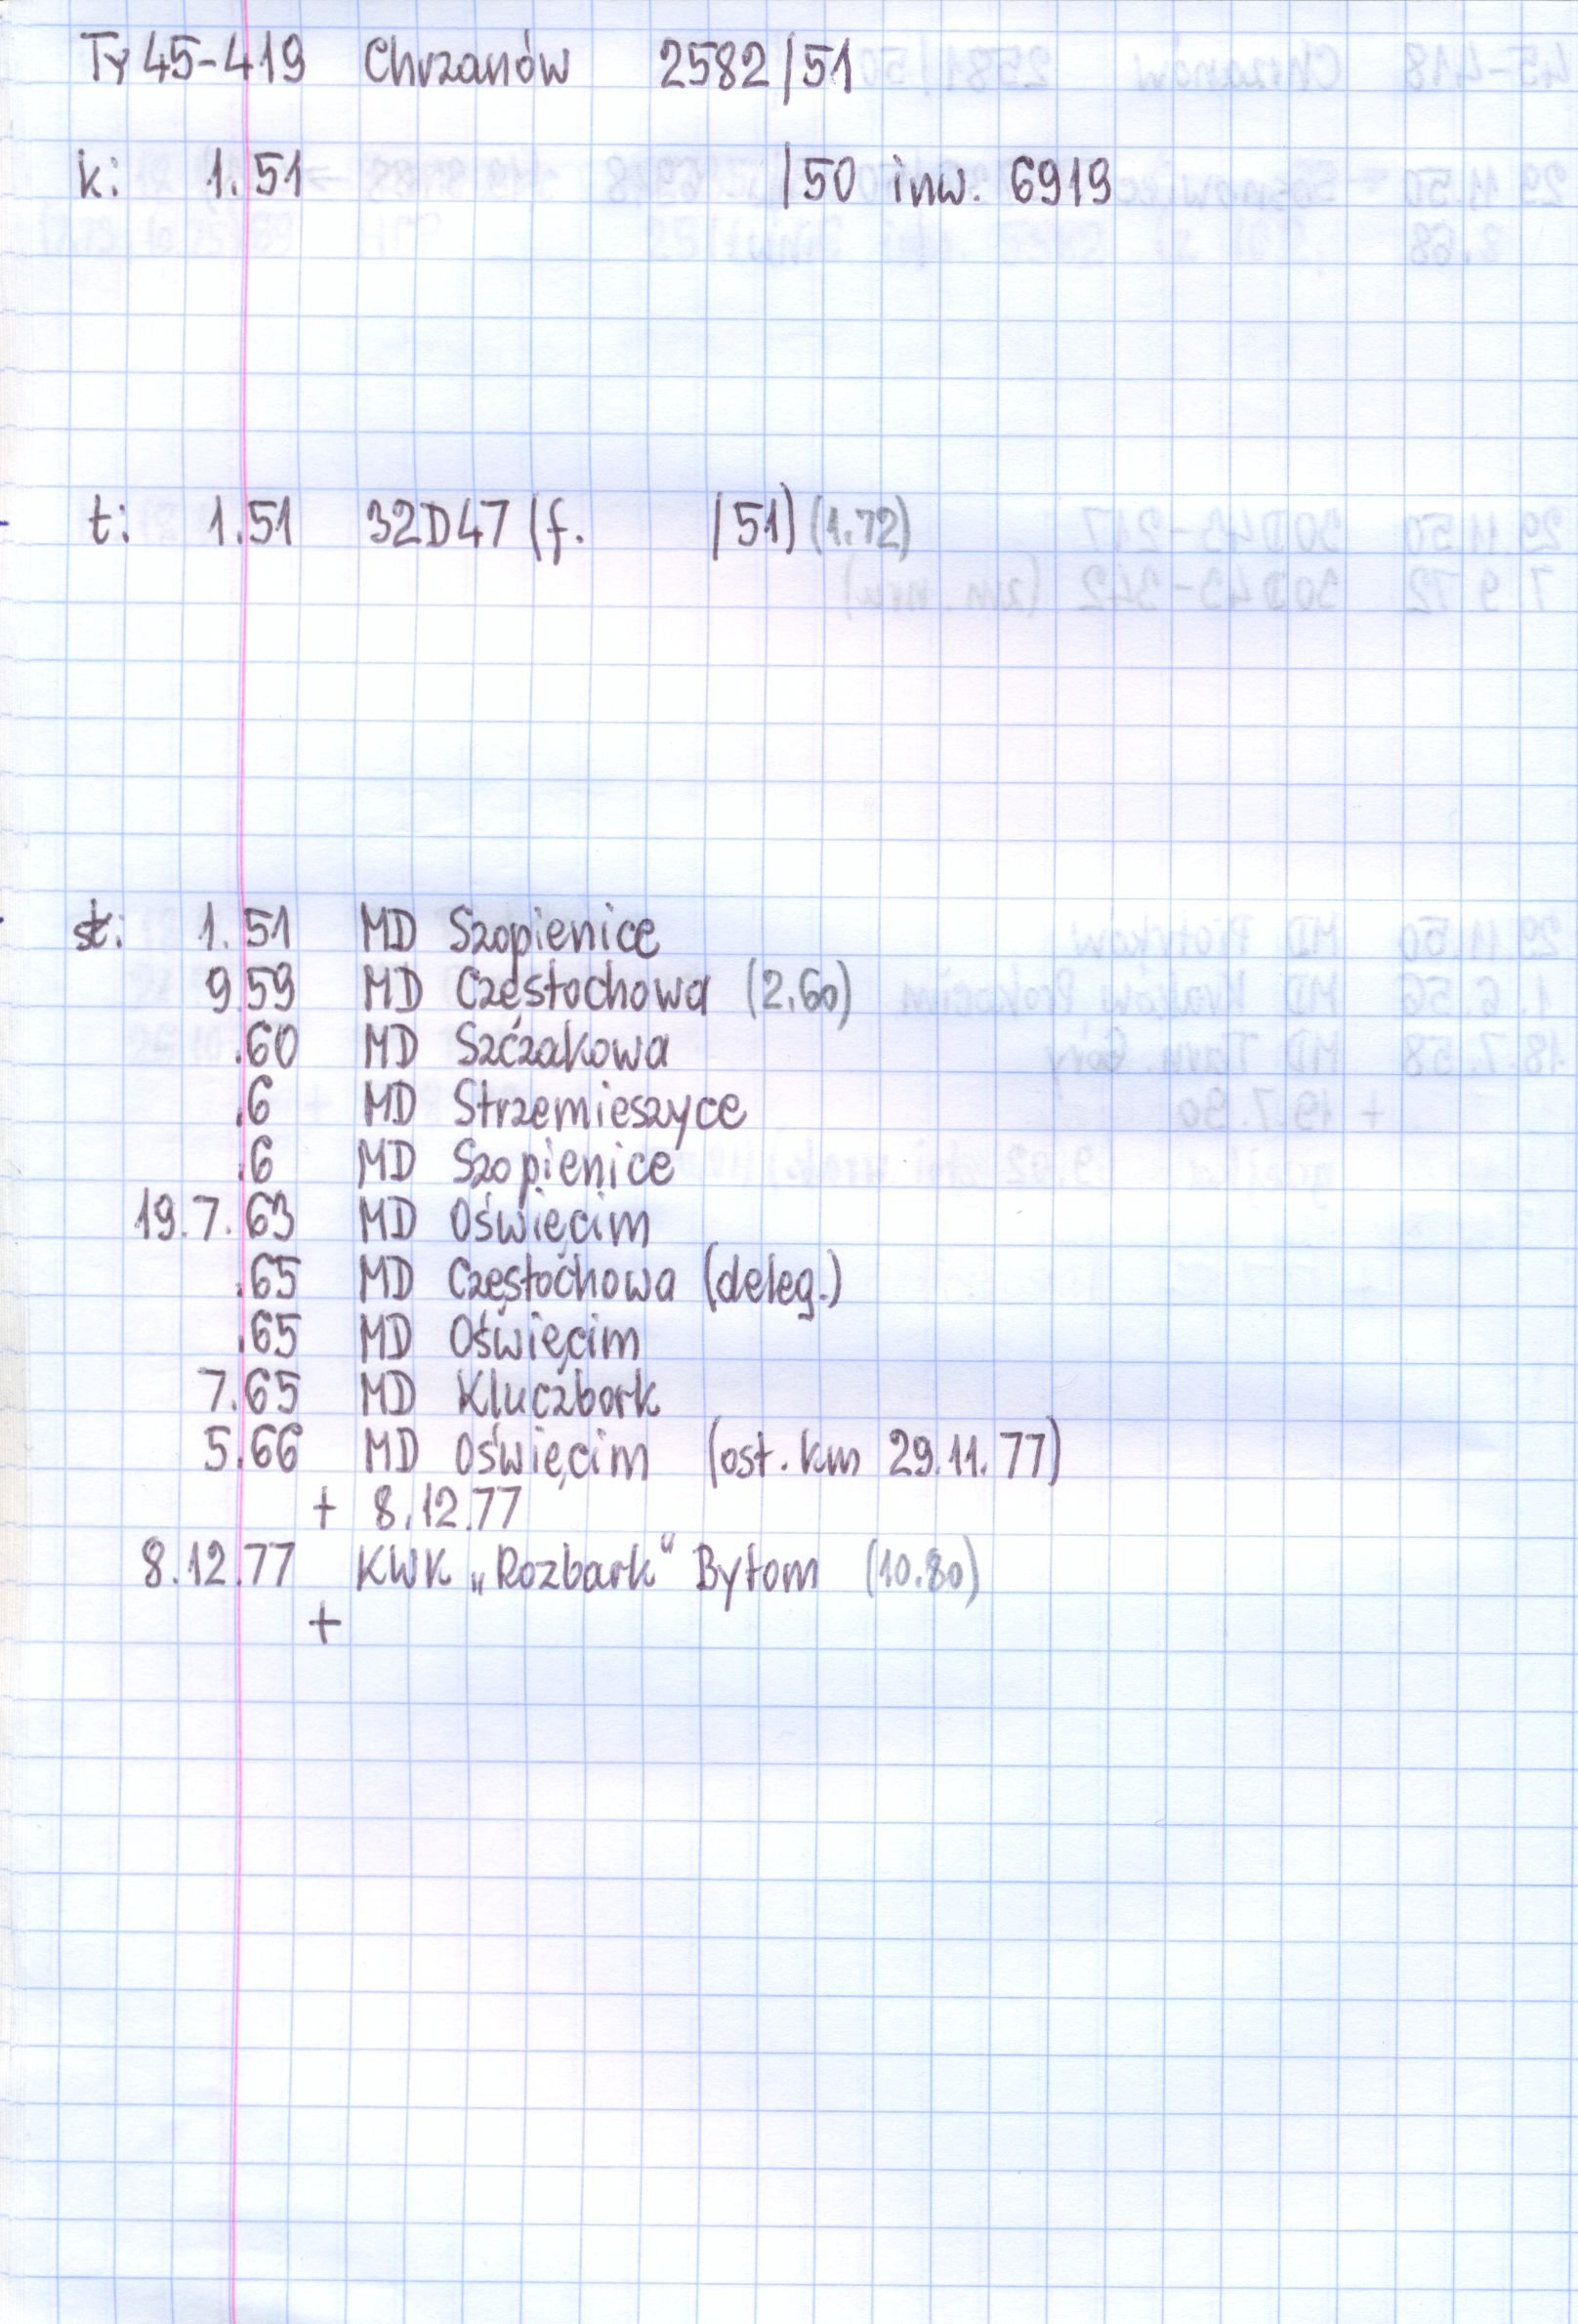 Ty45-419 Chrzanów 2582/51
k: 1.51 /50 inw. 6919
t: 1.51 32D47 (f. /51) (1.72)
st: 1.51 MD Szopienice
9.59 MD Częstochowa (2.60)
.60 MD Szczakowa
.6 MD Strzemieszyce
.6 MD Szopienice
19.7.63 MD Oświęcim
.65 MD Częstochowa (deleg.)
.65 MD Oświęcim
7.65 MD Kluczbork
5.66 MD Oświęcim (ost. km 29.11.77)
+ 8.12.77
8.12.77 KWK „Rozbark" Bytom (10.80)
+